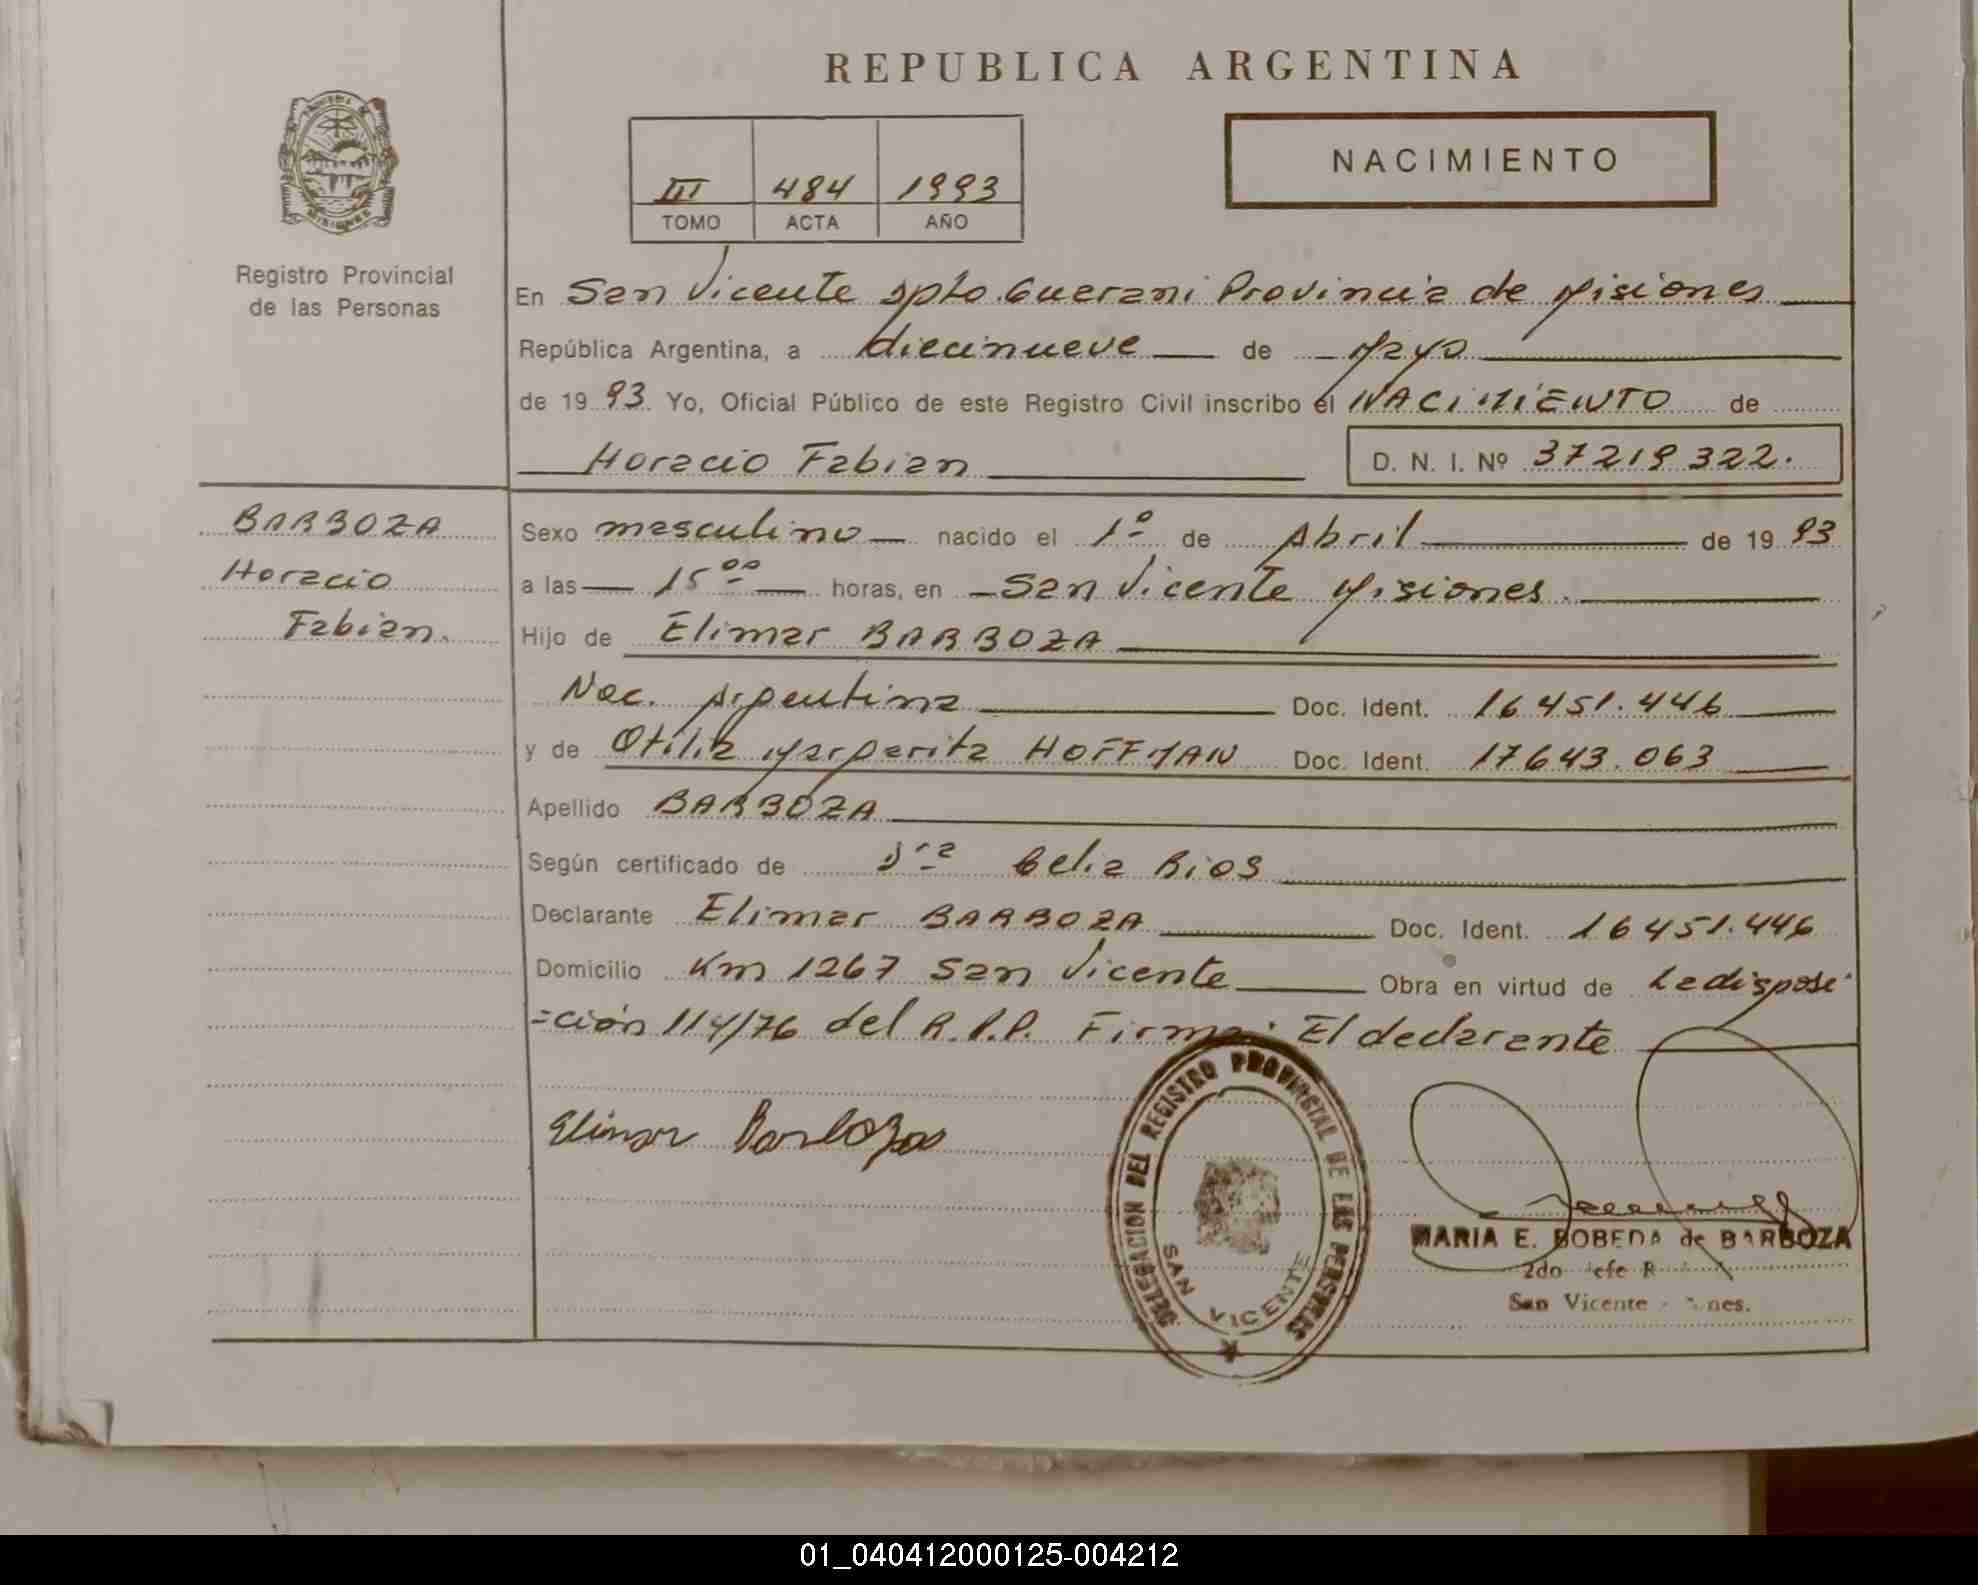 REPUBLICA ARGENTINA
NACIMIENTO
III 484 1993
TOMO ACTA AÑO
PROVINCIA DE MISIONES
Registro Provincial
de las Personas
En San Vicente Dpto. Guarani Provincia de Misiones
República Argentina, a diecinueve de Mayo
de 1993 Yo, Oficial Público de este Registro Civil inscribo el NACIMIENTO de
Horacio Fabian D. N. I. Nº 37219322.
BARBOZA
Horacio
Fabian.
Sexo masculino nacido el 1º de Abril de 1993
a las 15 00 horas, en San Vicente Misiones.
Hijo de Elimar BARBOZA
Nac. Argentina Doc. Ident. 16451.446
y de Otilia Margarita HOFFMAN Doc. Ident. 17643.063
Apellido BARBOZA
Según certificado de Dra Celia Rios
Declarante Elimar BARBOZA Doc. Ident. 16451.446
Domicilio Km 1267 San Vicente Obra en virtud de La disposi
=ción 114/76 del R.P.P. Firma: El declarante
Elimar Barboza
DELEGACION DEL REGISTRO PROVINCIAL DE LAS PERSONAS
SAN VICENTE
MARIA E. BOBEDA de BARBOZA
2do Jefe
San Vicente
01_040412000125-004212